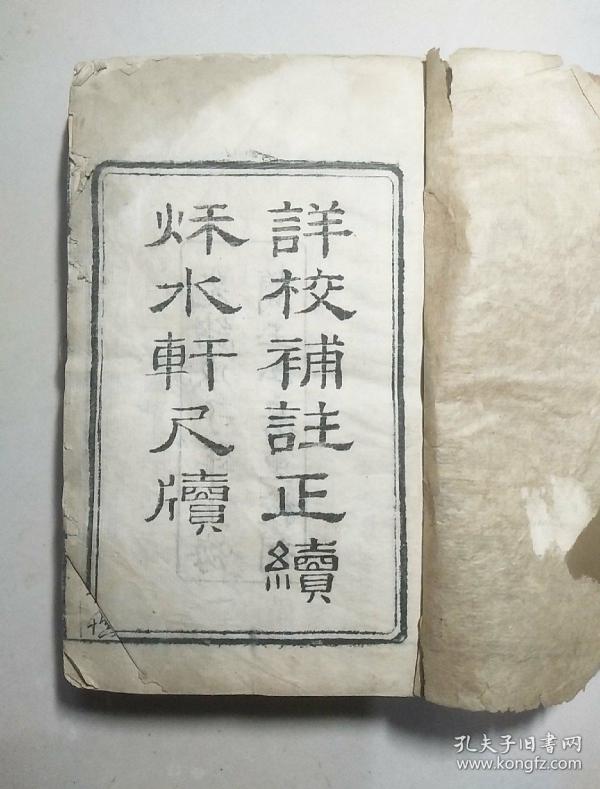 詳校補註正續
秌水軒尺牘
孔夫子旧书网
www.kongfz.com